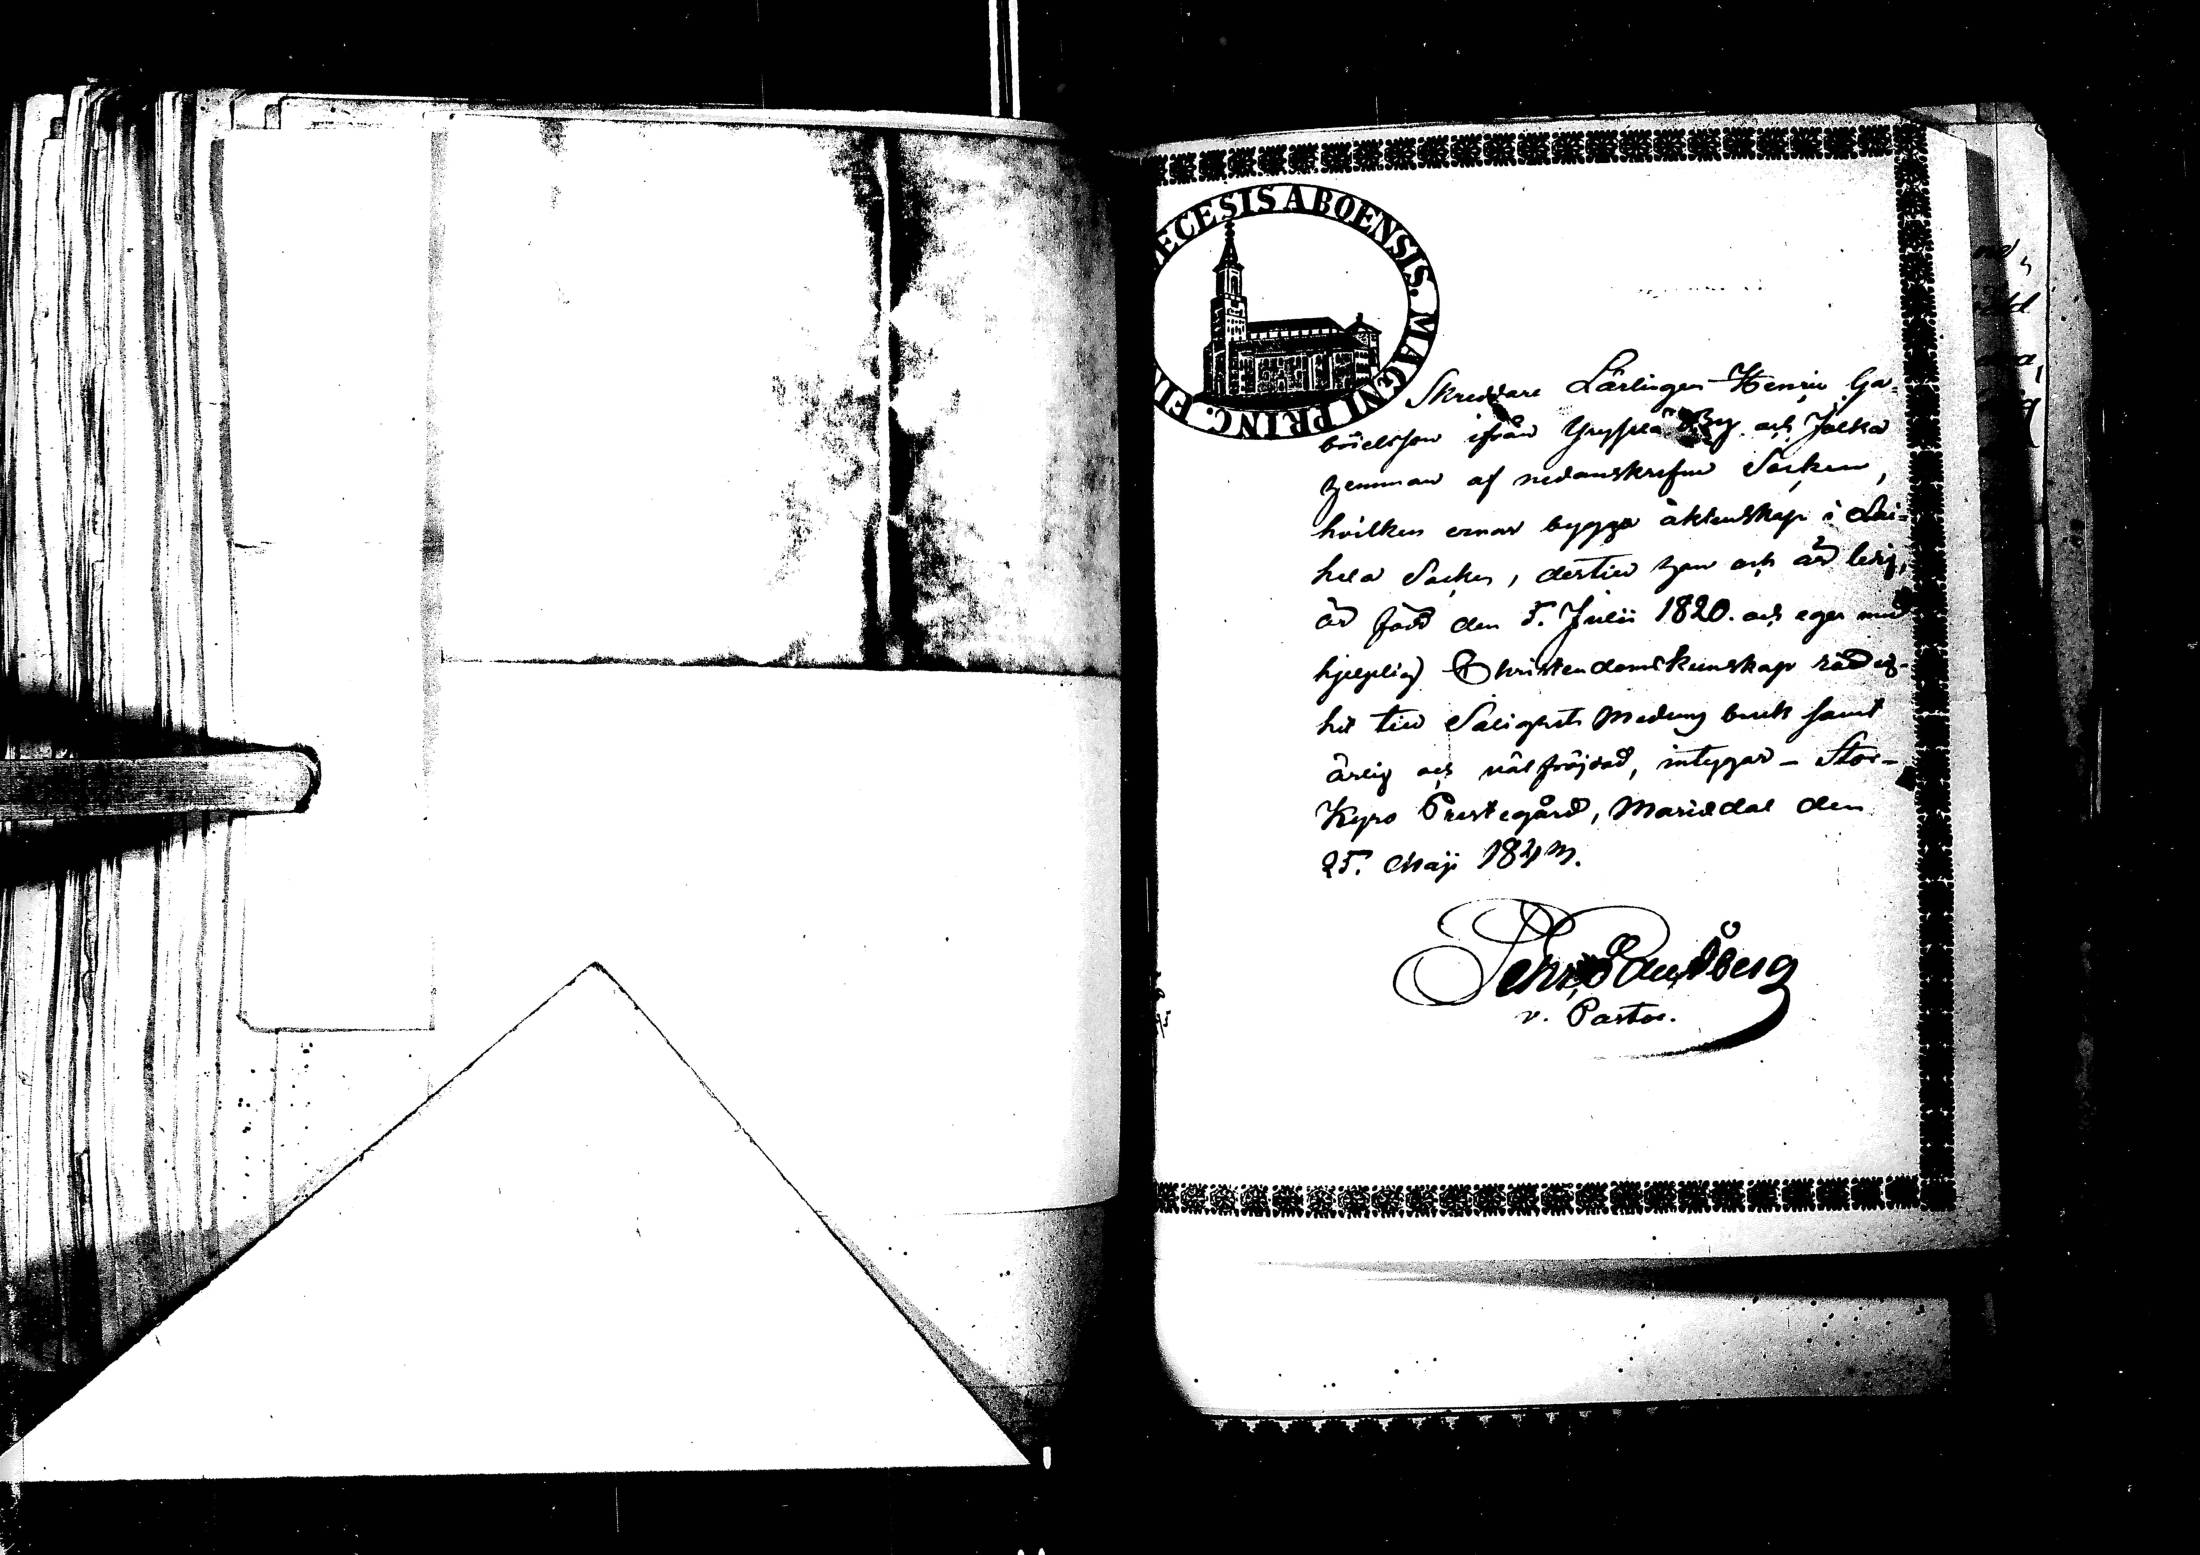 DIOECESIS ABOENSIS. MAGNI PRINC. FIN
Skreddare Lärlingen Henric Ga-
brielsson ifrån Yryselä By och Jälka
hemman af nedanskrefne Socken,
hvilken ernar bygga äktenskap i Lai-
hela Socken, dertill han och är ledig,
är född den 5. Julii 1820. och eger med
hjelplig Christendomskunskap rättig-
het till Salighets Medlens bruk samt
ärlig och välfräjdad, intygar - Stor-
Kyro Prestegård, Mariedal den
25. Maji 184
v. Pastor.